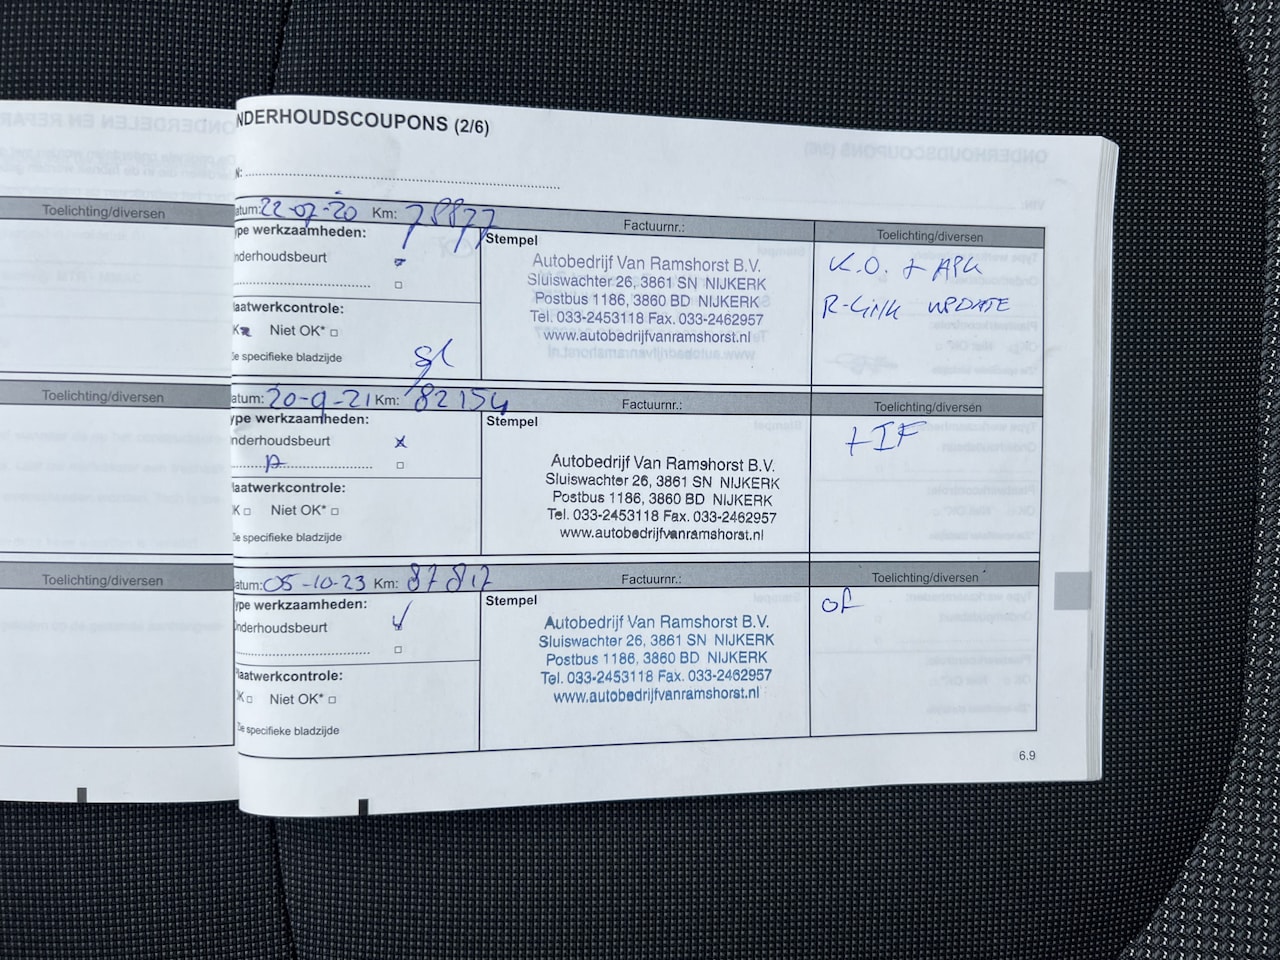 NDERHOUDSCOUPONS (2/6)
N:
Toelichting/diversen
atum: 22-07-20 Km: 78877
Factuurnr.:
Toelichting/diversen
ype werkzaamheden:
nderhoudsbeurt
laatwerkcontrole:
K Niet OK*
ie specifieke bladzijde
Stempel
Autobedrijf Van Ramshorst B.V.
Sluiswachter 26, 3861 SN NIJKERK
Postbus 1186, 3860 BD NIJKERK
Tel. 033-2453118 Fax. 033-2462957
www.autobedrijfvanramshorst.nl
K.O. + APK
R-Link UPDATE
Toelichting/diversen
atum: 20-9-21 Km: 82154
Factuurnr.:
Toelichting/diversen
ype werkzaamheden:
nderhoudsbeurt
A
laatwerkcontrole:
K Niet OK*
ie specifieke bladzijde
Stempel
Autobedrijf Van Ramshorst B.V.
Sluiswachter 26, 3861 SN NIJKERK
Postbus 1186, 3860 BD NIJKERK
Tel. 033-2453118 Fax. 033-2462957
www.autobedrijfvanramshorst.nl
Toelichting/diversen
atum: 05-10-23 Km: 87817
Factuurnr.:
Toelichting/diversen
ype werkzaamheden:
Onderhoudsbeurt
laatwerkcontrole:
OK Niet OK*
Zie specifieke bladzijde
Stempel
Autobedrijf Van Ramshorst B.V.
Sluiswachter 26, 3861 SN NIJKERK
Postbus 1186, 3860 BD NIJKERK
Tel. 033-2453118 Fax. 033-2462957
www.autobedrijfvanramshorst.nl
6.9